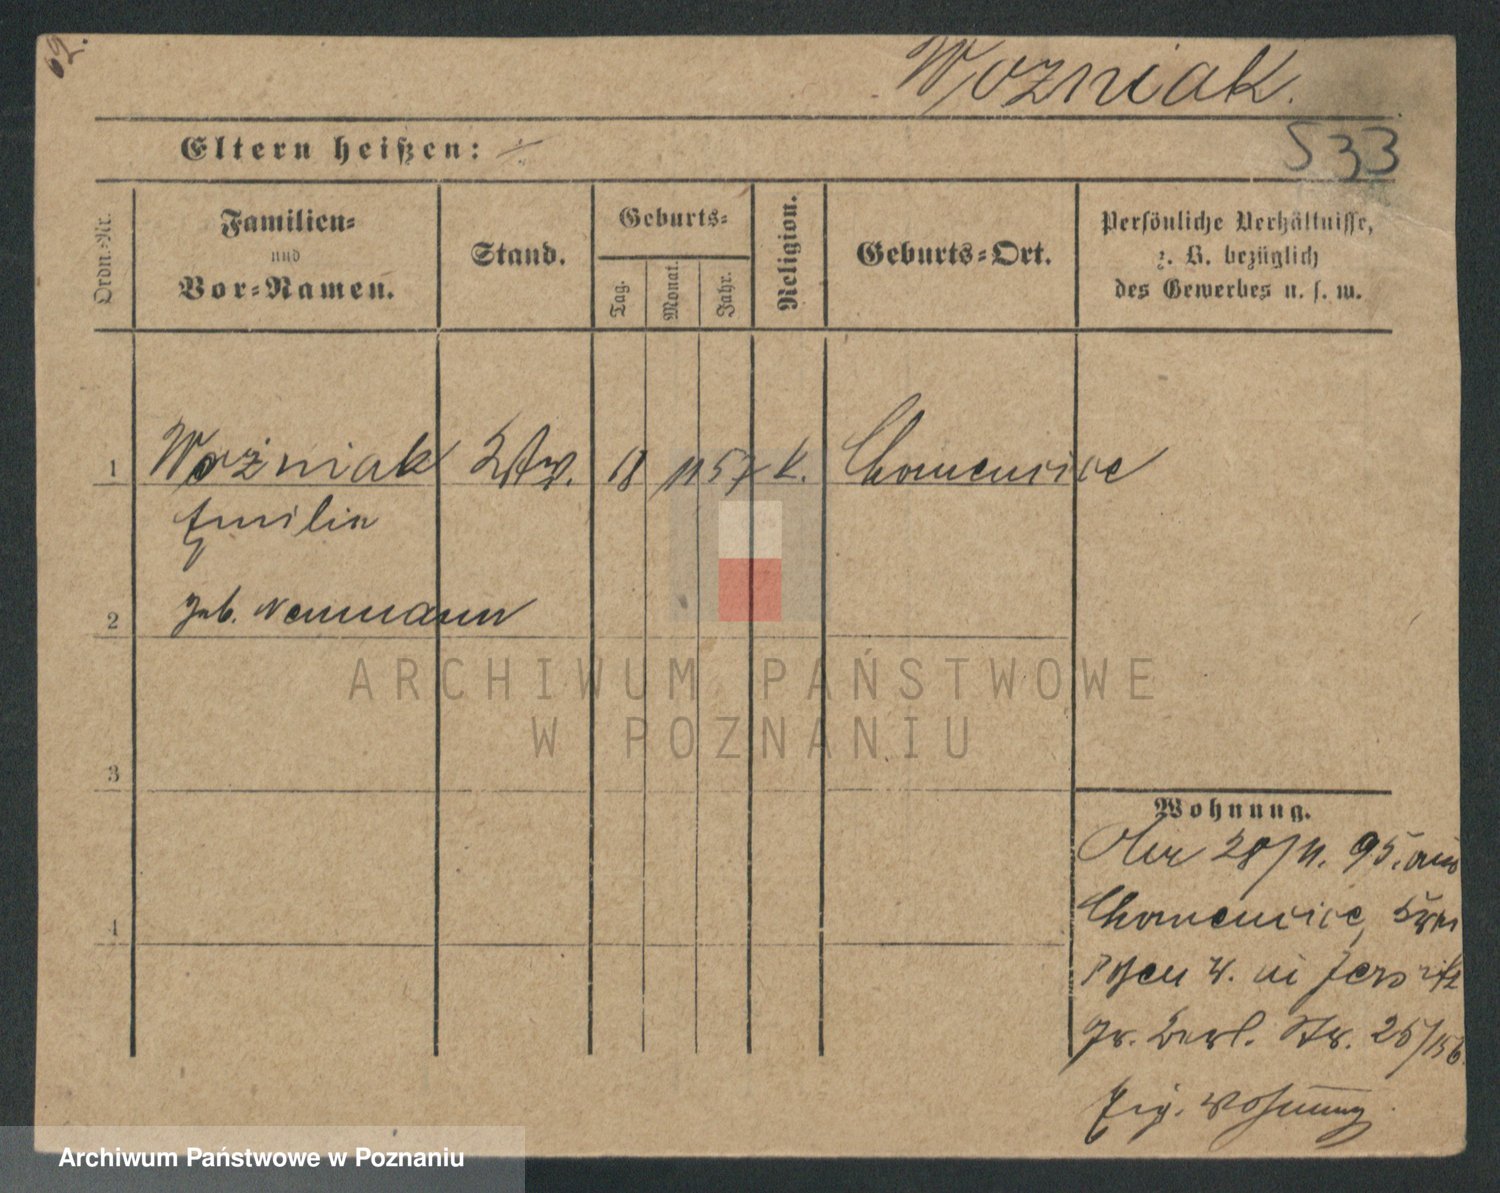 62.
Wozniak.
533
Eltern heißen: ÷
Ordn.-Nr.
Familien-
und
Vor-Namen.
Stand.
Geburts-
Tag.
Monat.
Jahr.
Religion.
Geburts-Ort.
Persönliche Verhältnisse,
z. B. bezüglich
des Gewerbes u. s. w.
1 Wożniak Wtw. 18 11 57 k. Chomencice
Emilie
2 geb. Neumann
3
4
ARCHIWUM PAŃSTWOWE
W POZNANIU
Wohnung.
Her 28/11. 95. aus
Chomencice, Kreis
Posen W. in Jersitz
Gr. Berl. Str. 25/156
Eig. Wohnung.
Archiwum Państwowe w Poznaniu